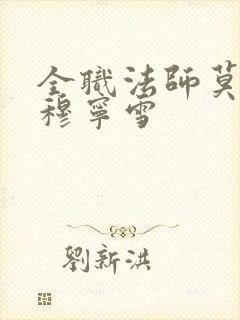 全職法師莫
穆寧雪
劉新洪